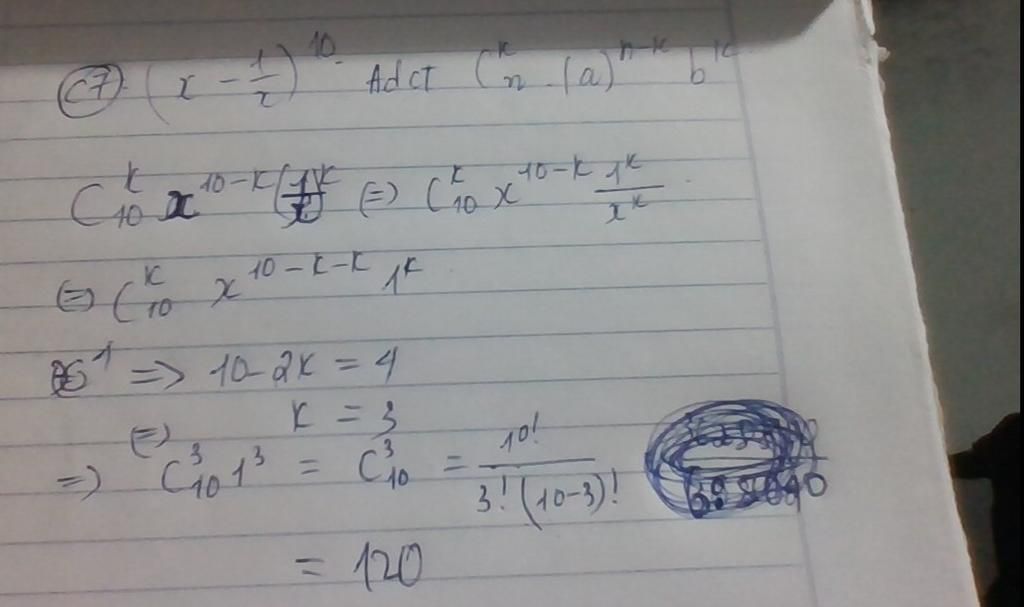 C7 (x - 1/x)^10 Adct C_n^k (a)^{n-k} b^k
C_10^k x^{10-k} (1/x)^k ⇔ C_10^k x^{10-k} 1^k/x^k
⇔ C_10^k x^{10-k-k} 1^k
⇒ 10 - 2k = 4
⇔ k = 3
⇒ C_10^3 1^3 = C_10^3 = 10!/3!(10-3)!
= 120